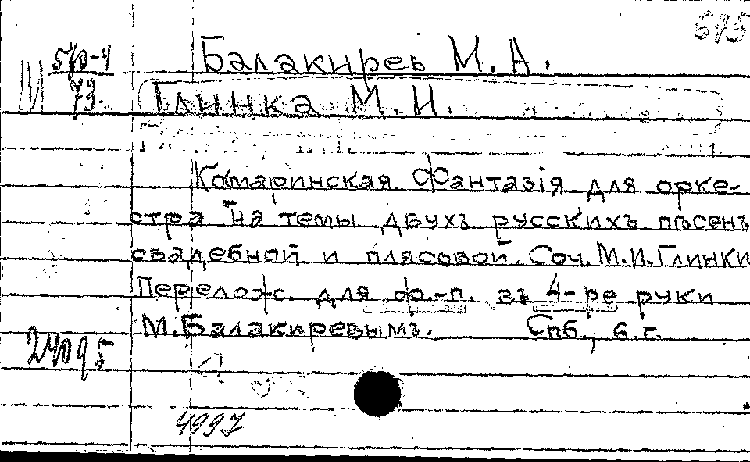 615
Балакирев М. А.
М 570-4
73
Глинка М. И.
Камаринская. Фантазія для орке-
стра на темы двухъ русскихъ пѣсенъ
свадебной и плясовой. Соч. М.И.Глинки
Перелож. для ф.-п. въ 4-ре руки
М.Балакиревымъ. Спб., б.г.
24095
4997